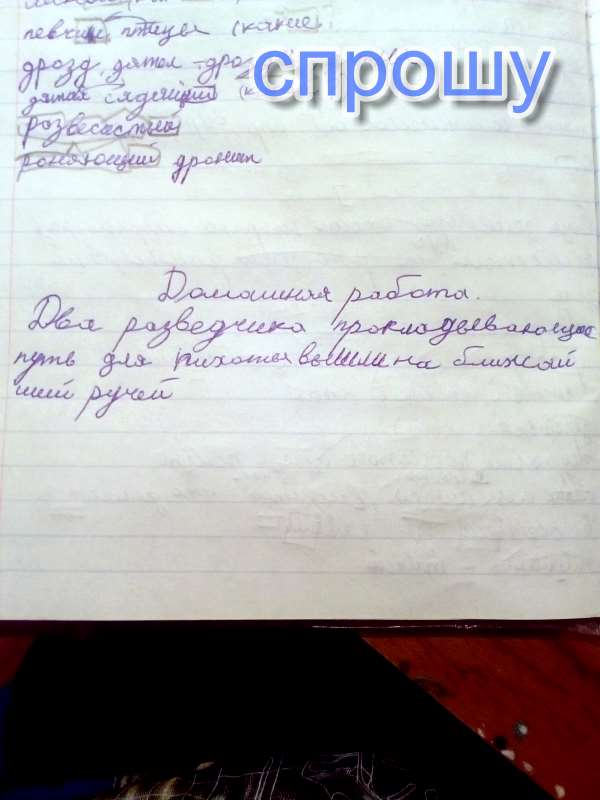 певчий птицы (какие
дрозд, дятел - дро
спрошу
дятел сидещий
развесистый
роняющий дрожит
Домашняя работа.
Два разведчика прокладывающие
путь для пихоты вышли на ближай
ший ручей